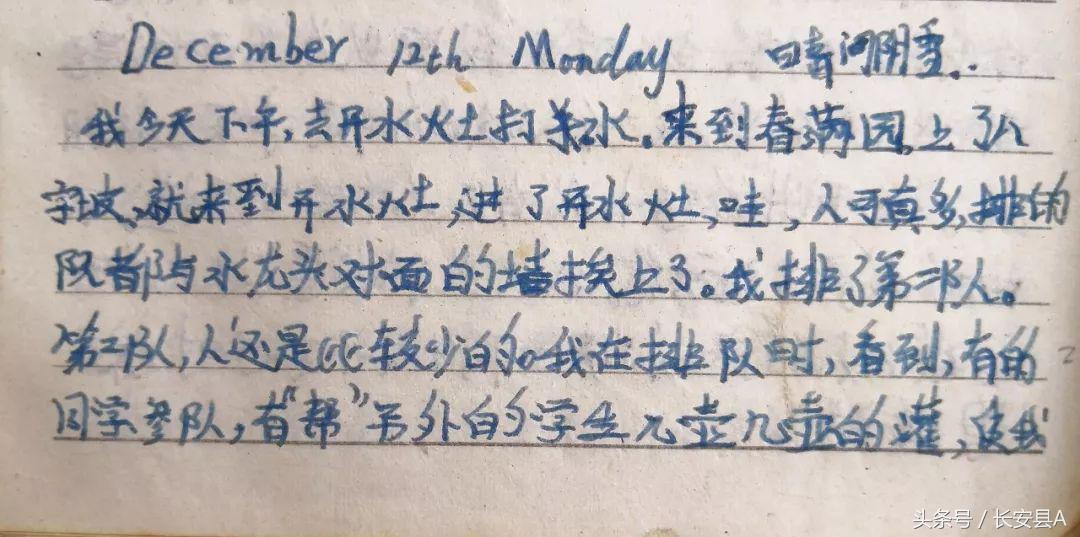 December 12th Monday 晴间阴重..
我今天下午,去开水灶打开水.来到春满园,上了八
字坡,就来到开水灶,进了开水灶,哇,人可真多,排的
队都与水龙头对面的墙挨上了。我排了第二队。
第二队,人还是比较少的。我在排队时,看到,有的
同学参队,有“帮”另外的学生几壶几壶的灌,使我
头条号 / 长安县A